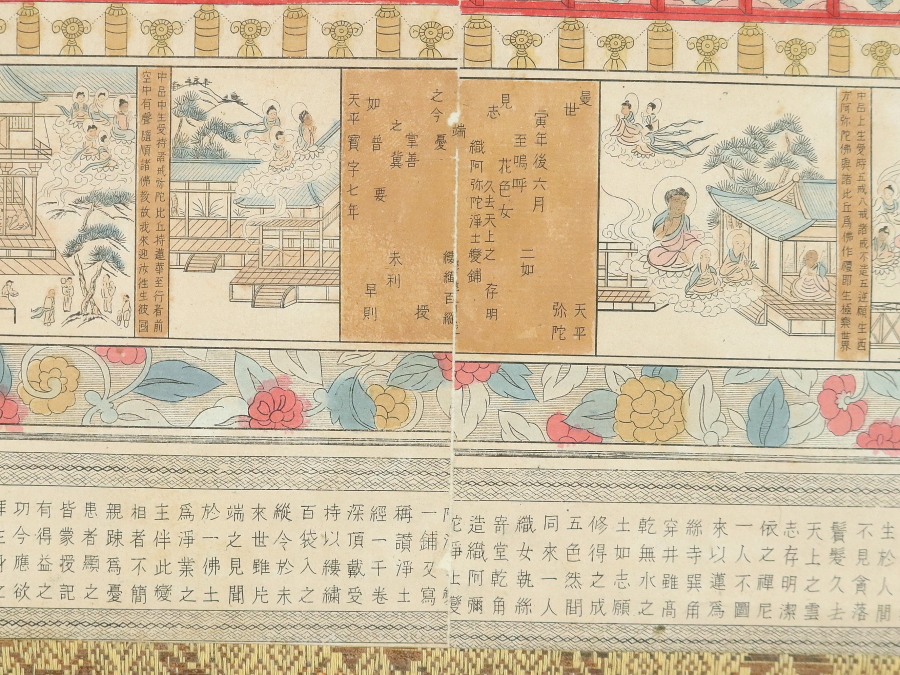 中品上生受時五戒八戒諸戒不造五逆願生西
方阿弥陀佛與諸比丘爲佛作禮即生極樂世界
曼 天平
世 弥陀
寅年後六月 二如
至嗚呼
見 花色女
志 久去天上之 存明
織阿弥陀淨土變鋪
端
之今憂 織百
掌善 授
之 未利
如普要 早則
天平寳字七年
中品中生受持諸戒弥陀比丘持蓮華至行者前
空中有聲讃順諸佛教故我來迎汝往生彼國
生於人間
不見貪落
鬢髮久去
天上之雲
志存明潔
依之禪尼
一人不圖
來以蓮爲
絲寺巽角
穿井雖髙
乾無水之
土如志願
修得之成
五色然間
同來一人
織女執絲
寄堂乾角
造織阿彌
陀淨土變
一鋪又寫
稱讃淨土
經一千卷
深頂戴受
持以縷繍
百袋入之
縱令於未
來世雖片
端之見聞
於一佛土
爲淨業之
主伴此變
相者不簡
親踈爲憂
患者顯之
皆蒙授記
有得益之
功今應欲
拜生身之